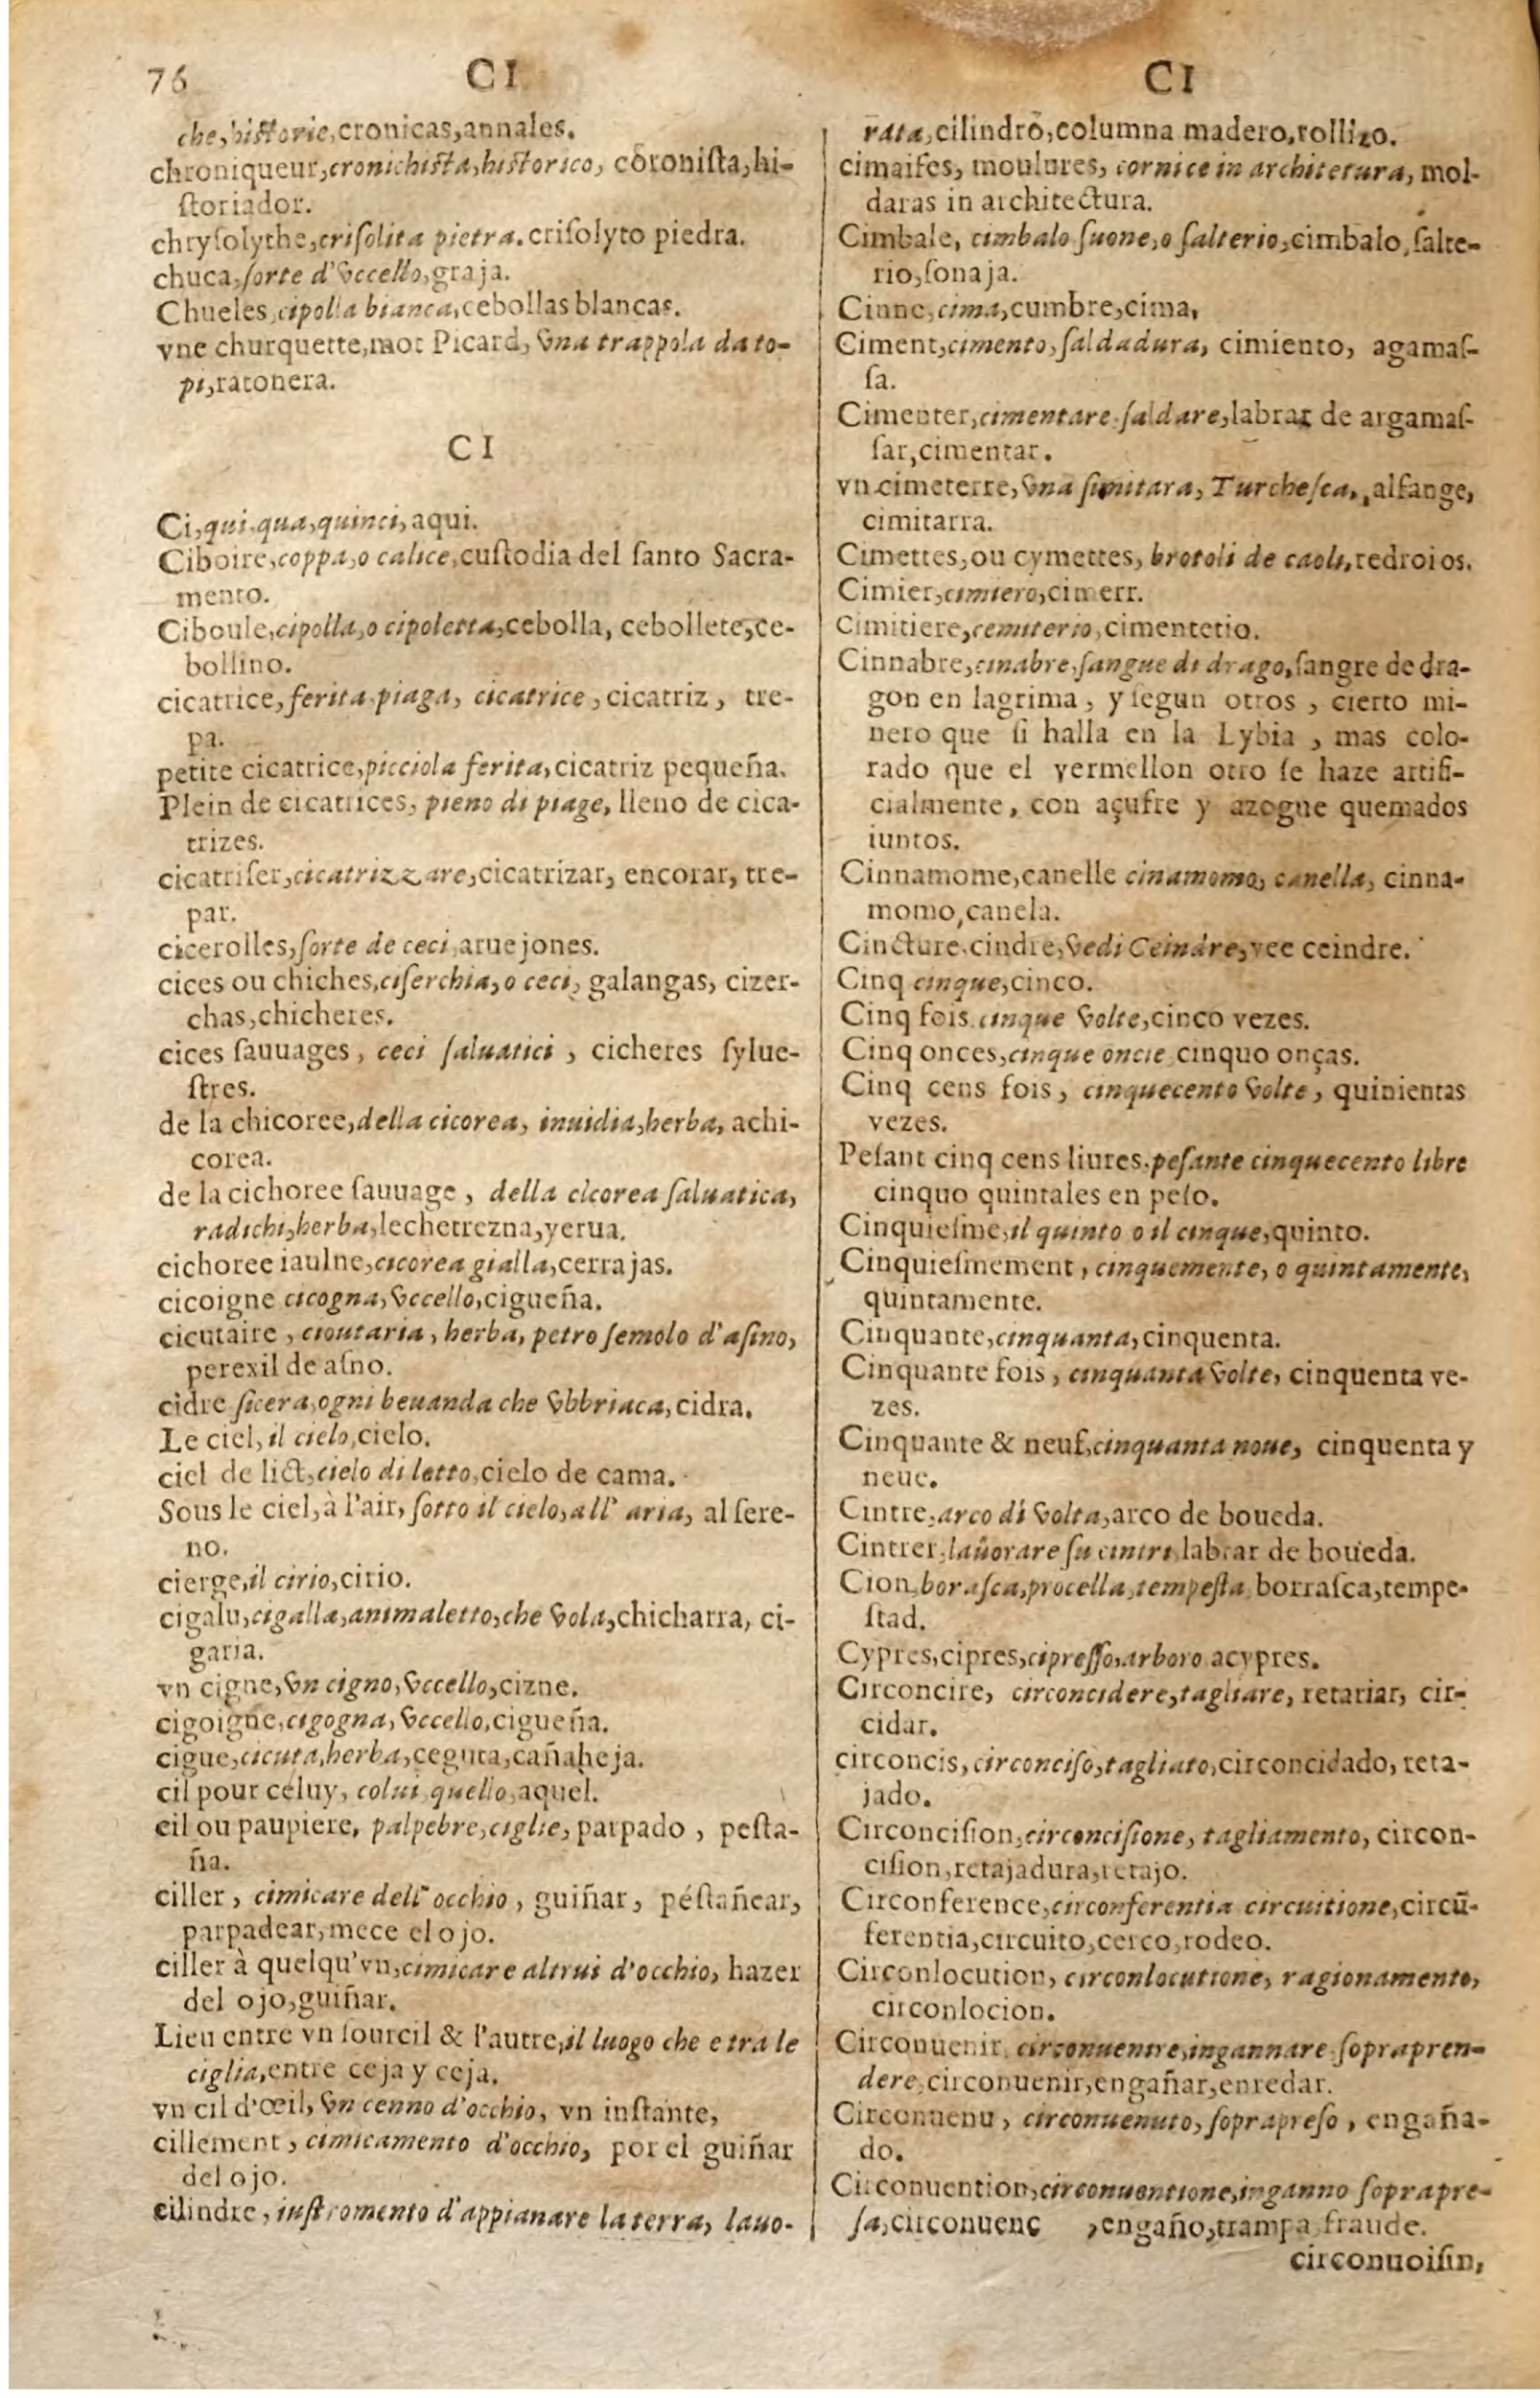 76
CI
CI
che,historie,cronicas,annales.
chroniqueur,cronichista,historico, coronista,hi-
storiador.
chrysolythe,crisolita pietra. crisolyto piedra.
chuca,sorte d'vccello,graja.
Chueles,cipolla bianca,cebollas blancas.
vne churquette,mot Picard, vna trappola da to-
pi,ratonera.
CI
Ci,qui.qua,quinci,aqui.
Ciboire,coppa,o calice,custodia del santo Sacra-
mento.
Ciboule,cipolla,o cipoletta,cebolla, cebollete,ce-
bollino.
cicatrice,ferita.piaga, cicatrice,cicatriz, tre-
pa.
petite cicatrice,picciola ferita,cicatriz pequeña.
Plein de cicatrices, pieno di piage, lleno de cica-
trizes.
cicatriser,cicatrizzare,cicatrizar, encorar, tre-
par.
cicerolles,sorte de ceci,aruejones.
cices ou chiches,ciserchia,o ceci, galangas, cizer-
chas,chicheres.
cices sauuages, ceci saluatici, cicheres sylue-
stres.
de la chicoree,della cicorea, inuidia,herba, achi-
corea.
de la cichoree sauuage, della cicorea saluatica,
radichi,herba,lechetrezna,yerua.
cichoree iaulne,cicorea gialla,cerrajas.
cicoigne cicogna,vccello,cigueña.
cicutaire, cioutaria, herba, petrosemolo d'asino,
perexil de asno.
cidre sicera,ogni beuanda che vbbriaca,cidra.
Le ciel,il cielo,cielo.
ciel de lict,cielo di letto,cielo de cama.
Sous le ciel,à l'air, sotto il cielo,all' aria, al sere-
no.
cierge,il cirio,cirio.
cigalu,cigalla,animaletto,che vola,chicharra, ci-
garia.
vn cigne,vn cigno,vccello,cizne.
cigoigne,cigogna,vccello,cigueña.
cigue,cicuta,herba,ceguta,cañaheja.
cil pour celuy, colui quello,aquel.
cil ou paupiere, palpebre,ciglie, parpado, pesta-
ña.
ciller, cimicare dell'occhio, guiñar, péstañear,
parpadear,mece el ojo.
ciller à quelqu'vn,cimicare altrui d'occhio, hazer
del ojo,guiñar.
Lieu entre vn sourcil & l'autre,il luogo che e tra le
ciglia,entre ceja y ceja.
vn cil d'œil, vn cenno d'occhio, vn instante,
cillement, cimicamento d'occhio, por el guiñar
del ojo.
cilindre, instromento d'appianare la terra, lauo-
rata,cilindro,columna madero,rollizo.
cimaises, moulures, cornice in architetura, mol-
daras in architectura.
Cimbale, cimbalo suone,o salterio,cimbalo,salte-
rio,sonaja.
Cinne,cima,cumbre,cima,
Ciment,cimento,saldadura, cimiento, agamas-
sa.
Cimenter,cimentare.saldare,labrar de argamas-
sar,cimentar.
vn cimeterre, vna simitara, Turchesca,,alfange,
cimitarra.
Cimettes,ou cymettes, brotoli de caoli,redroios.
Cimier,cimiero,cimerr.
Cimitiere,cemiterio,cimentetio.
Cinnabre,cinabre,sangue di drago,sangre de dra-
gon en lagrima, y segun otros, cierto mi-
nero que si halla en la Lybia, mas colo-
rado que el vermellon otro se haze artifi-
cialmente, con açufre y azogue quemados
iuntos.
Cinnamome,canelle cinamomo, canella, cinna-
momo,canela.
Cincture,cindre,vedi Ceindre,vee ceindre.
Cinq cinque,cinco.
Cinq fois cinque volte,cinco vezes.
Cinq onces,cinque oncie cinquo onças.
Cinq cens fois, cinquecento volte, quinientas
vezes.
Pesant cinq cens liures.pesante cinquecento libre
cinquo quintales en peso.
Cinquiesme,il quinto o il cinque,quinto.
Cinquiesmement, cinquemente, o quintamente,
quintamente.
Cinquante,cinquanta,cinquenta.
Cinquante fois, cinquanta volte, cinquenta ve-
zes.
Cinquante & neuf,cinquanta noue, cinquenta y
neue.
Cintre,arco di volta,arco de boueda.
Cintrer,lauorare su cintri labrar de boueda.
Cion,borasca,procella,tempesta,borrasca,tempe-
stad.
Cypres,cipres,cipresso,arboro acypres.
Circoncire, circoncidere,tagliare, retariar, cir-
cidar.
circoncis,circonciso,tagliato,circoncidado, reta-
jado.
Circoncision,circoncisione, tagliamento, circon-
cision,retajadura,retajo.
Circonference,circonferentia circuitione,circũ-
ferentia,circuito,cerco,rodeo.
Circonlocution, circonlocutione, ragionamento,
circonlocion.
Circonuenir, circonuenire,ingannare.soprapren-
dere,circonuenir,engañar,enredar.
Circonuenu, circonuenuto,soprapreso, engaña-
do.
Circonuention,circonuentione,inganno soprapre-
sa,circonuenç ,engaño,trampa,fraude.
circonuoisin,